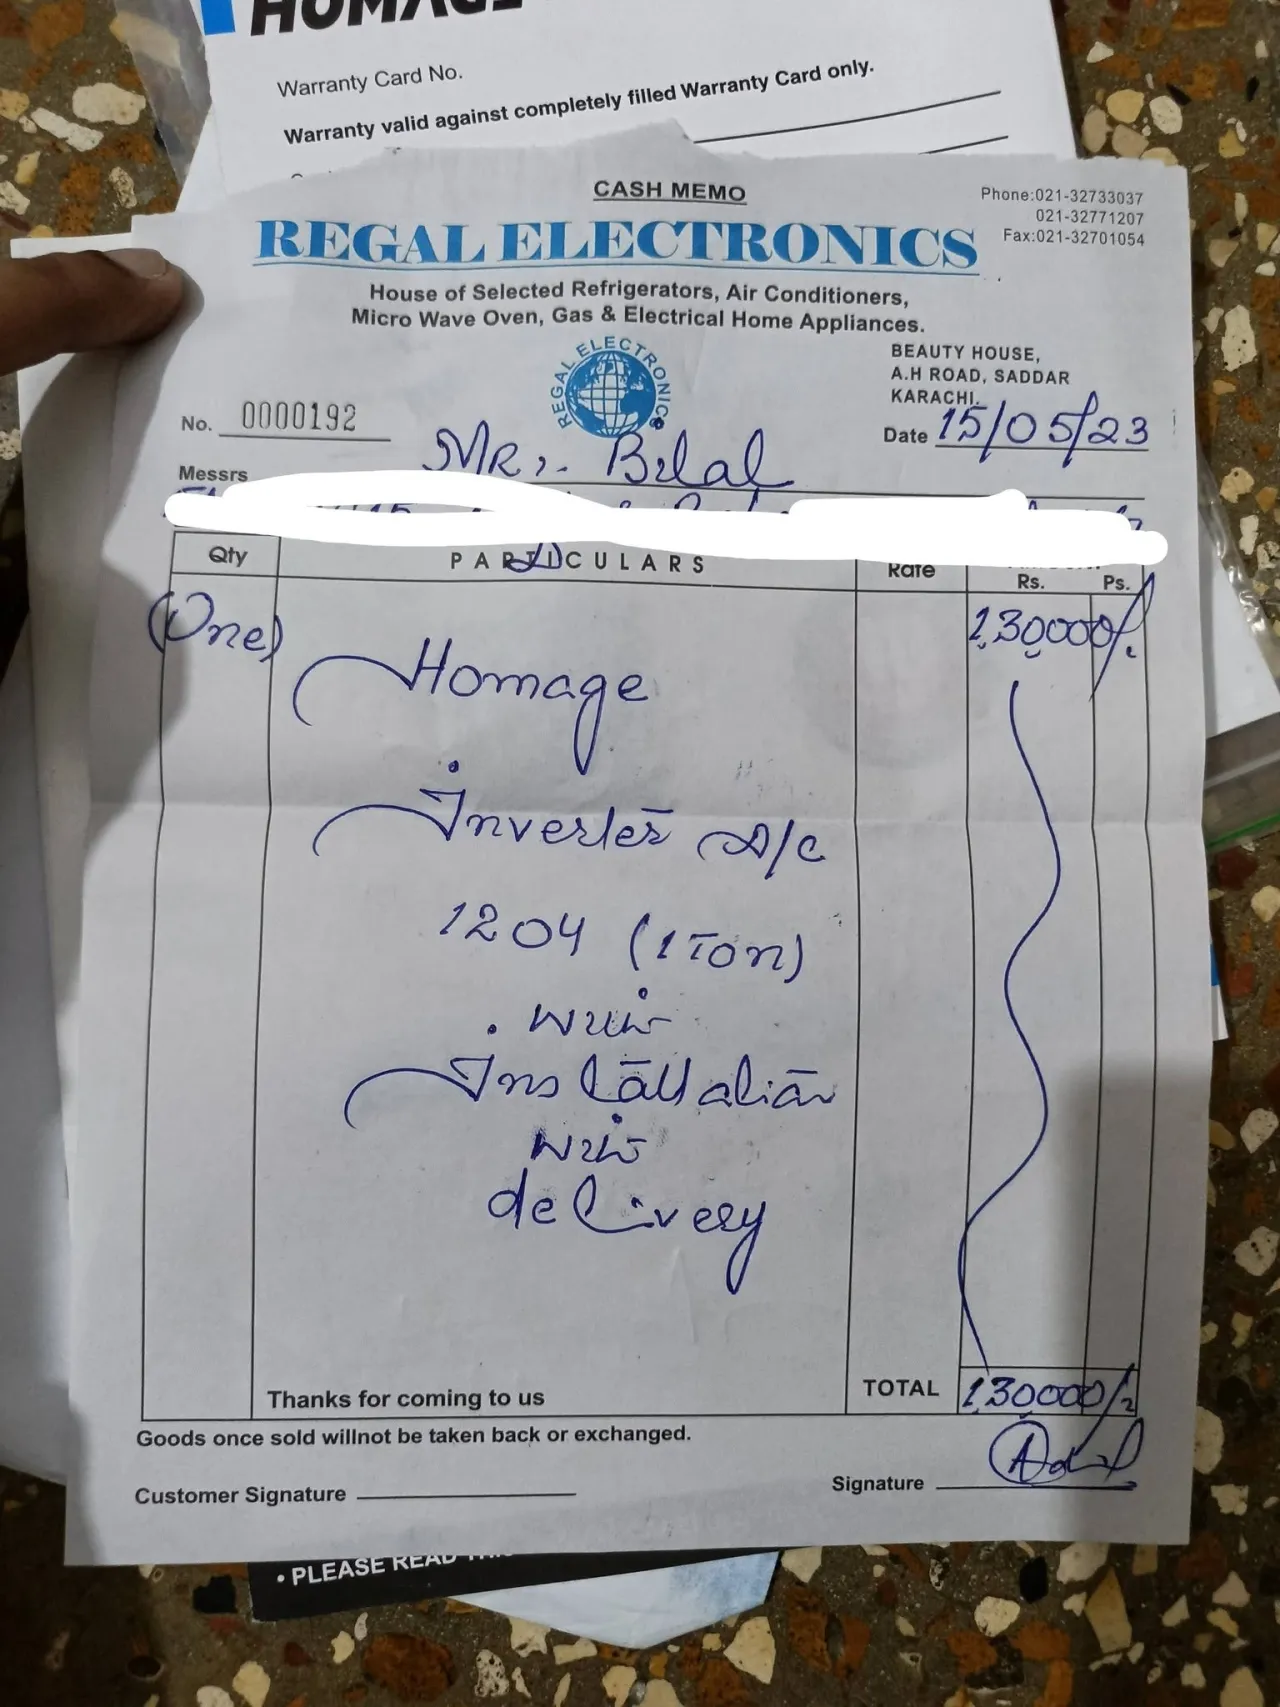 HOMAGE
Warranty Card No.
Warranty valid against completely filled Warranty Card only.
CASH MEMO
Phone:021-32733037
021-32771207
Fax:021-32701054
REGAL ELECTRONICS
House of Selected Refrigerators, Air Conditioners,
Micro Wave Oven, Gas & Electrical Home Appliances.
REGAL ELECTRONICS
BEAUTY HOUSE,
A.H ROAD, SADDAR
KARACHI.
No. 0000192
Date 15/05/23
Messrs MR. Bilal
Qty PARTICULARS Rate Rs. Ps.
(One) Homage 130000/-
Inverter A/C
1204 (1 Ton)
with
Installation
with
delivery
Thanks for coming to us TOTAL 130000/-
Goods once sold willnot be taken back or exchanged.
Customer Signature Signature
• PLEASE READ